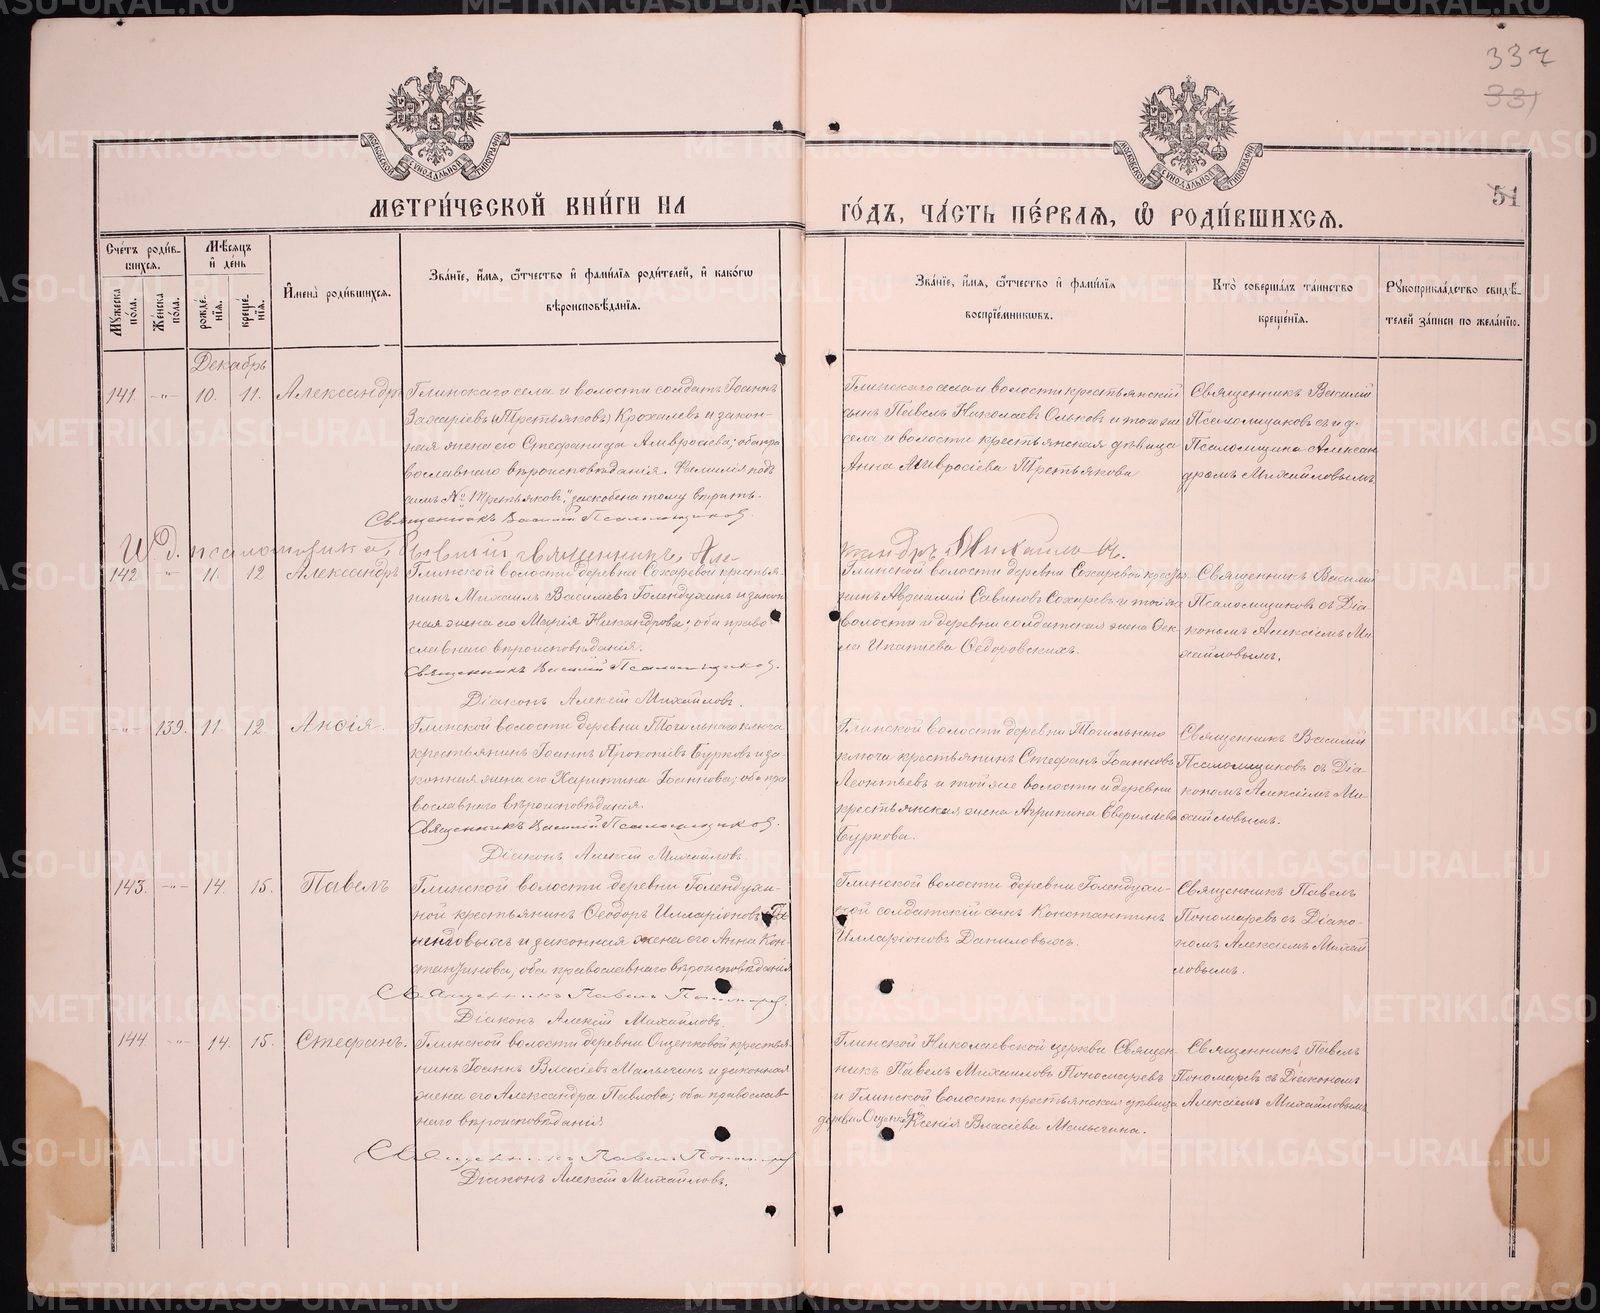 337
331
51
МОСКОВСКОЙ СѴНОДАЛЬНОЙ ТИПОГРАФІИ
МОСКОВСКОЙ СѴНОДАЛЬНОЙ ТИПОГРАФІИ
МЕТРИ́ЧЕСКОЙ КНИ́ГИ НА
ГО́ДЪ, ЧА́СТЬ ПЕ́РВАЯ, Ѡ҆ РОДИ́ВШИХСЯ.
Сче́тъ роди́вшихся.
Мꙋжеска по́ла.
Же́нска по́ла.
Мѣсяцъ и҆ де́нь
рожде́нїя.
креще́нїя.
И҆мена̀ роди́вшихся.
Зва́нїе, и҆́мя, ѻ҆́тчество и҆ фами́лїя роди́телей, и҆ како́гѡ вѣроисповѣ́данїя.
Зва́нїе, и҆́мя, ѻ҆́тчество и҆ фами́лїя воспрїе́мникѡвъ.
Кто̀ соверша́лъ та́инство креще́нїя.
Рꙋкоприкла́дство свидѣ́телей за́писи по жела́нїю.
Декабрь
141. -"- 10. 11. Александръ
Глинскаго села и волости солдатъ Іоаннъ
Захаріевъ (Третьяковъ) Крохалевъ и закон-
ная жена его Стефанида Амвросіева; оба пра
вославнаго вѣроисповѣданія. Фамилія подъ
симъ № "Третьяковъ" заскобена тому вѣрить.
Священникъ Василій Псаломщиковъ.
Глинскаго села и волости крестьянскій
сынъ Павелъ Николаевъ Ольковъ и того же
села и волости крестьянская дѣвица
Анна Амвросіева Третьякова
Священникъ Василій
Псаломщиковъ съ и. д.
Псаломщика Алексан
дромъ Михайловымъ
И. д. псаломщика, бывшій священникъ, Але-
ксандръ Михайловъ.
142. " 11. 12 Александръ
Глинской волости деревни Сохаревой крестья-
нинъ Михаилъ Василіевъ Голендухинъ и закон
ная жена его Марія Никандрова; оба право
славнаго вѣроисповѣданія.
Священникъ Василій Псаломщиковъ.
Діаконъ Алексій Михайловъ.
Глинской волости деревни Сохаревой крестья
нинъ Авраамій Савиновъ Сохаревъ и той же
волости и деревни солдатская жена Ѳек
ла Ипатіева Ѳедоровскихъ.
Священникъ Василій
Псаломщиковъ съ Діа
кономъ Алексіемъ Ми
хайловымъ.
-"- 139. 11. 12. Анѳія.
Глинской волости деревни Тогильнаго ключа
крестьянинъ Іоаннъ Прокопіевъ Бурковъ и за-
конная жена его Харитина Іоаннова; оба пра
вославнаго вѣроисповѣданія.
Священникъ Василій Псаломщиковъ.
Діаконъ Алексій Михайловъ.
Глинской волости деревни Тогильнаго
ключа крестьянинъ Стефанъ Іоанновъ
Леонтьевъ и той же волости и деревни
крестьянская жена Агрипина
Буркова.
Священникъ Василій
Псаломщиковъ съ Діа
кономъ Алексіемъ Ми-
хайловымъ.
143. -"- 14. 15. Павелъ
Глинской волости деревни Голендухи-
ной крестьянинъ Ѳеодоръ Илларіоновъ
и законная жена его Анна Кон
стантинова, оба православнаго вѣроисповѣданія
Священникъ Павелъ Пономаревъ
Діаконъ Алексій Михайловъ.
Глинской волости деревни Голендухи-
ной солдатскій сынъ Константинъ
Илларіоновъ Даниловыхъ.
Священникъ Павелъ
Пономаревъ съ Діако-
номъ Алексіемъ Михай
ловымъ.
144 -"- 14. 15. Стефанъ.
Глинской волости деревни Ощепковой крестья
нинъ Іоаннъ Власіевъ Малыгинъ и законная
жена его Александра Павлова; оба православ-
наго вѣроисповѣданія
Священникъ Павелъ Пономаревъ
Діаконъ Алексій Михайловъ.
Глинской Николаевской церкви Священ-
никъ Павелъ Михаиловъ Пономаревъ
и Глинской волости крестьянская дѣвица
деревни Ощепковой Ксенія Власіева Малыгина.
Священникъ Павелъ
Пономаревъ съ Діакономъ
Алексіемъ Михайловымъ
METRIKI.GASO-URAL.RU